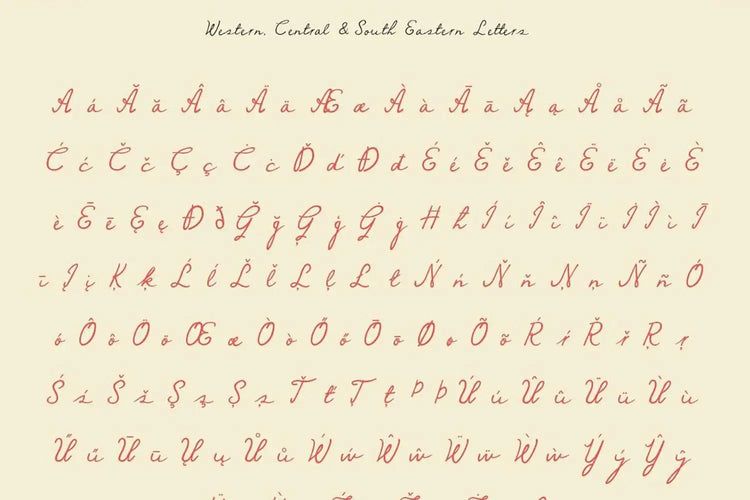 Western, Central & South Eastern Letters
Á á Ă ă Â â Ä ä Æ æ À à Ā ā Ą ą Å å Ã ã
Ć ć Č č Ç ç Ċ ċ Ď ď Đ đ É é Ě ě Ê ê Ë ë Ė ė È
è Ē ē Ę ę Ð ð Ğ ğ Ģ ģ Ġ ġ Ħ ħ Í í Î î Ï ï İ Ì ì Ī
ī Į į Ķ ķ Ĺ ĺ Ľ ľ Ļ ļ Ł ł Ń ń Ň ň Ņ ņ Ñ ñ Ó
ó Ô ô Ö ö Œ œ Ò ò Ő ő Ō ō Ø ø Õ õ Ŕ ŕ Ř ř Ŗ ŗ
Ś ś Š š Ş ş Ș ș Ť ť Ț ț Þ þ Ú ú Û û Ü ü Ù ù
Ű ű Ū ū Ų ų Ů ů Ẃ ẃ Ŵ ŵ Ẅ ẅ Ẁ ẁ Ý ý Ŷ ŷ